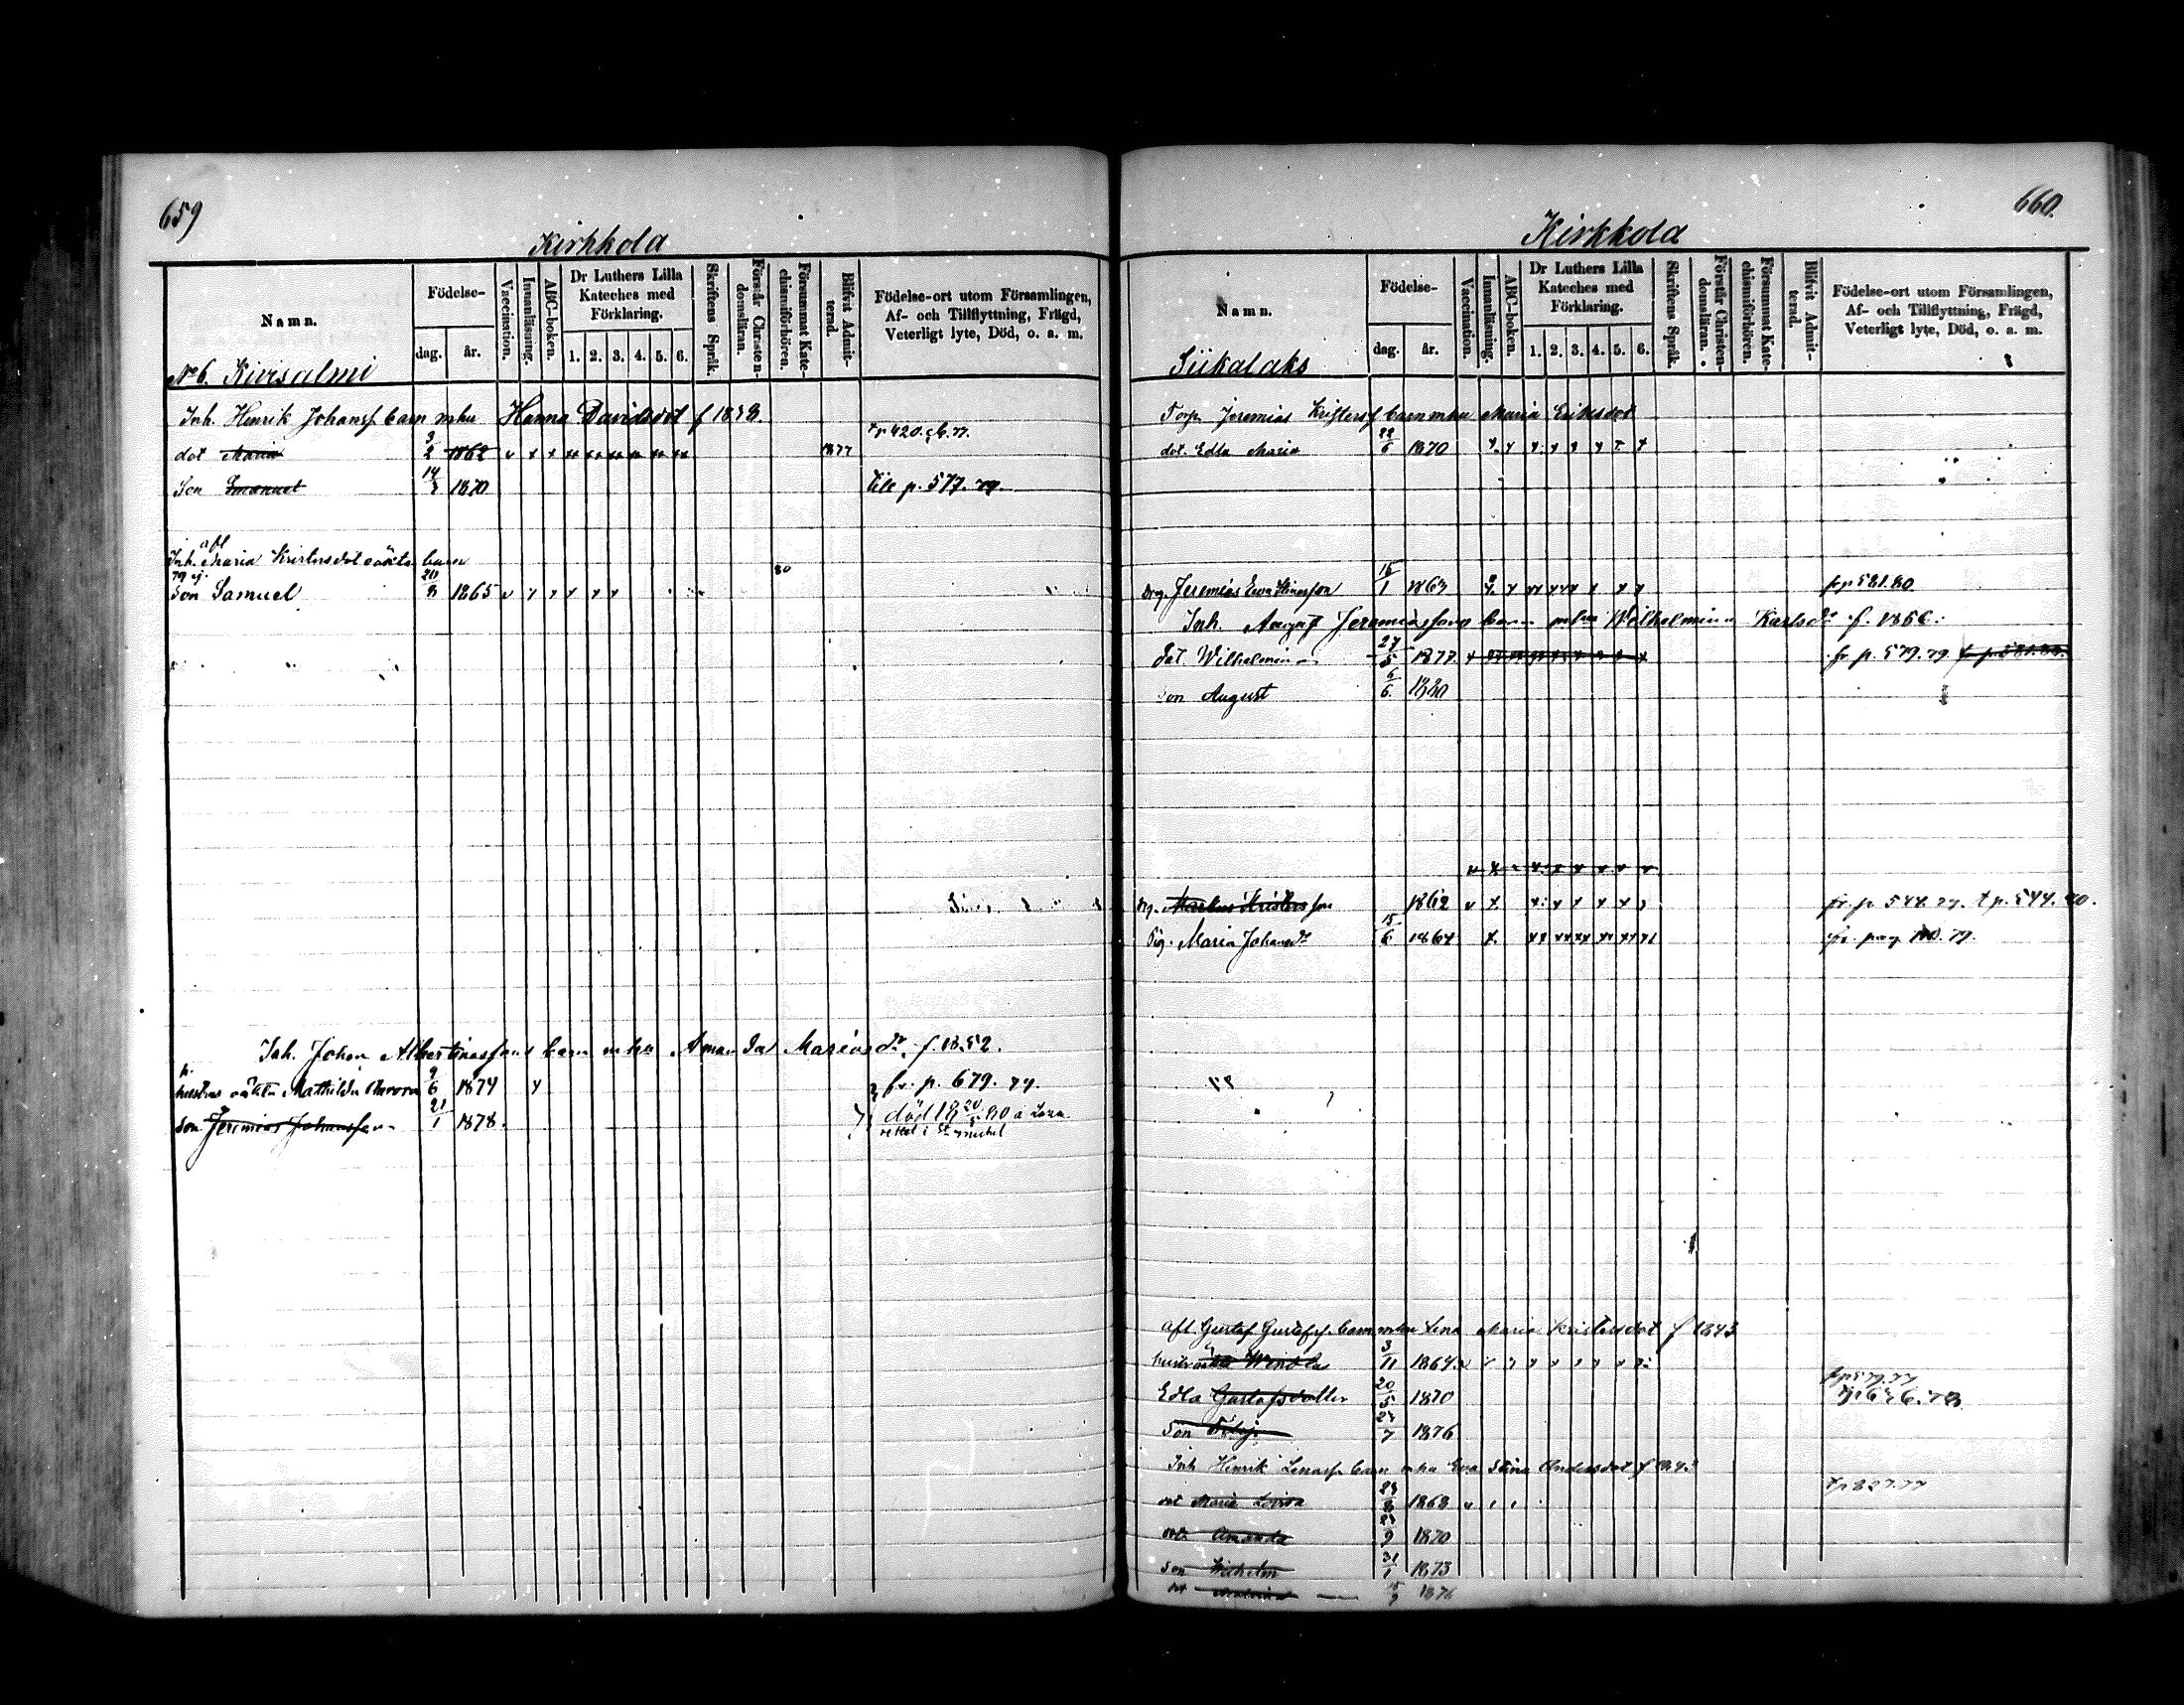 659
Kirkkola
Namn.
Födelse-
dag.
år.
Vaccination.
Innanläsning.
ABC-boken.
Dr Luthers Lilla Kateches med Förklaring.
1. 2. 3. 4. 5. 6.
Skriftens Språk.
Förstår Christendomsläran.
Försummat Katechismiförhören.
Blifvit Admitterad.
Födelse-ort utom Församlingen, Af- och Tillflyttning, Frägd, Veterligt lyte, Död, o. a. m.
No 6. Kivisalmi
Inh. Henrik Johanss. barn m hu Hanna Davidsdot f 1838.
dot Maria 3/2 1862 1877
Son Emanuel 14/ 1870 till p. 577. 79.
afl
Inh. Maria Kristersdot oäkta barn
Son Samuel 20/8 1865 80
Inh. Johan Albertinassons barn m hu Amanda Mariasdr. f. 1852.
hustrus oäkta Mathilda Aurora 9/6 1874 fr. p. 679. 79.
Son Jeremias Johansson 21/1 1878. död 18 20/ 80 å
i St Michel
660.
Kirkkola
Namn.
Födelse-
dag.
år.
Vaccination.
Innanläsning.
ABC-boken.
Dr Luthers Lilla Kateches med Förklaring.
1. 2. 3. 4. 5. 6.
Skriftens Språk.
Förstår Christendomsläran.
Försummat Katechismiförhören.
Blifvit Admitterad.
Födelse-ort utom Församlingen, Af- och Tillflyttning, Frägd, Veterligt lyte, Död, o. a. m.
Siikalaks
Torp. Jeremias Kristerss barn m hu Maria Eriksdot
dot. Edla Maria 22/6 1870
Drg. Jeremias Eva Stinasson 15/1 1863 fr p 581. 80
Inh. August Jeremiassons barn m hu Wilhelmina Karlsdr f. 1856.
dot Wilhelmina 27/5 1877 fr p. 579. 79.
Son August 6/6 1880
Drg. Markus Kristersson 1862 fr. p. 544. 79. t p. 544. 80.
Pig. Maria Johansdr 15/6 1864 fr. pag 79.
afl. Gustaf Gustafss. barn m hu Lena Maria Kristersdot f 1843
hustr oäkta Wendla 3/11 1864
Edla Gustafsdotter 20/5 1870
Son 27/7 1876
Inh Henrik Lenass. barn m hu Eva Stina Andersdot f
dot Maria Lovisa 1868 t p 827. 77
dot Amanda 9 1870
Son Wilhelm 31/1 1873
dot 1876